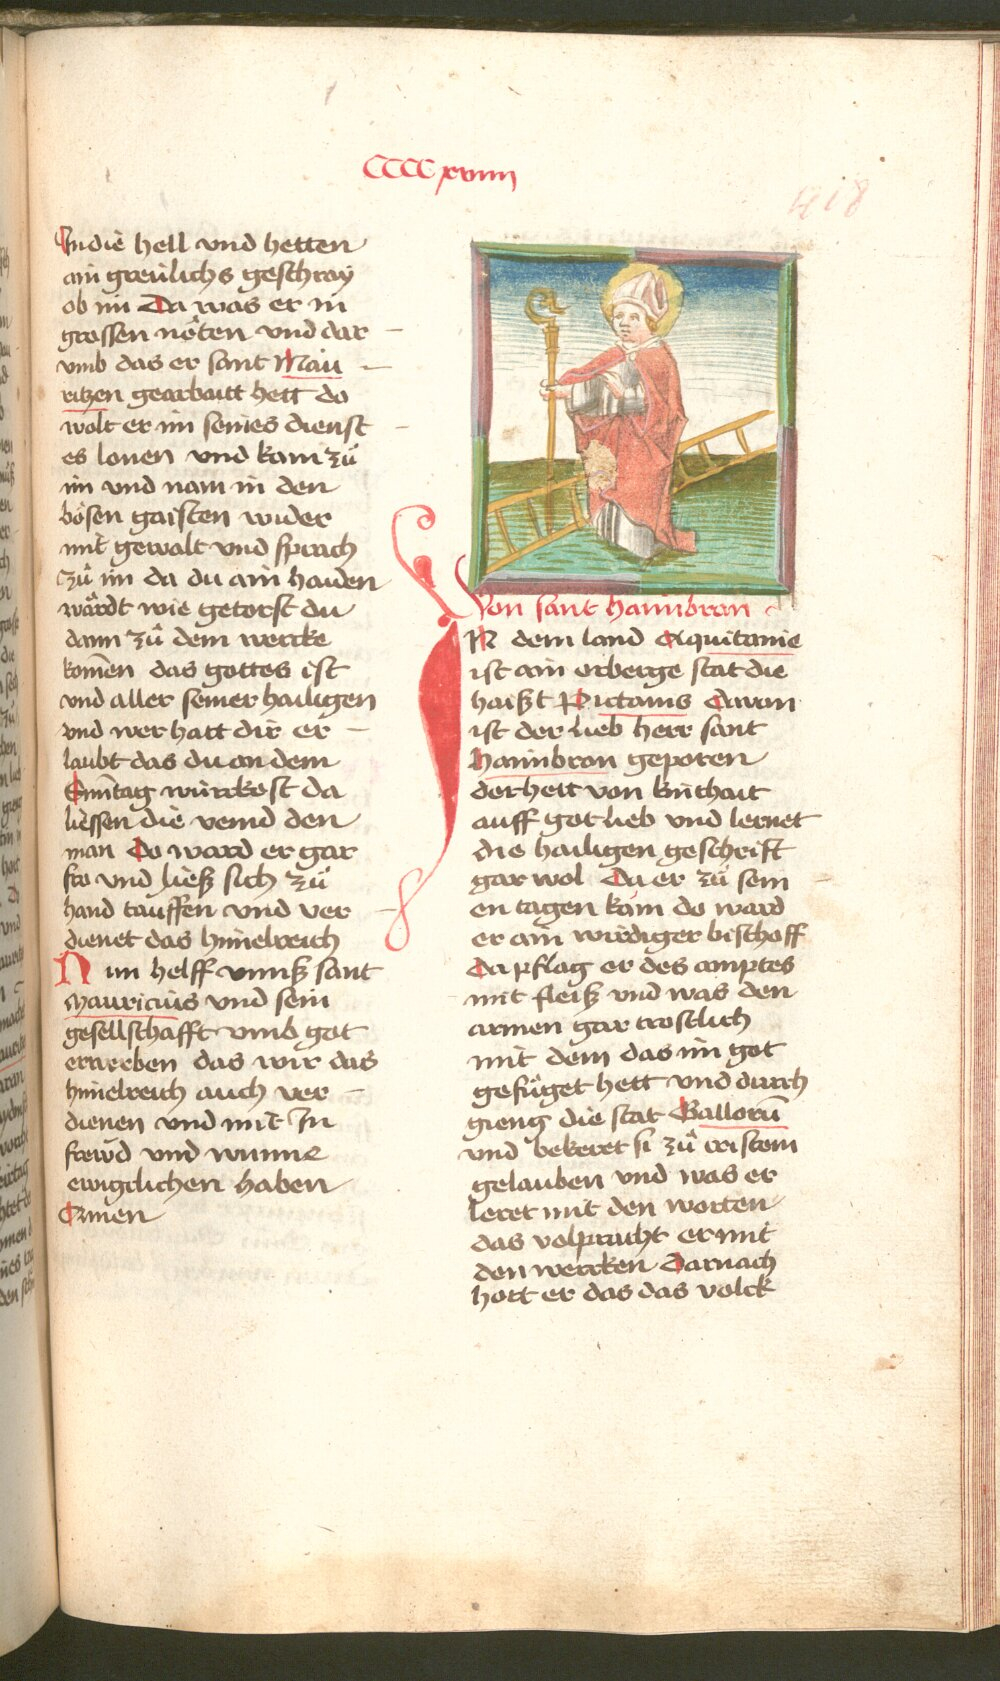 CCCCxviiii
418
In die hell vnd hetten
ain greulichs geschray
ob im Da was er in
grossen nöten vnd dar
vmb das er sant Mau
ritzen gearbaitt hett do
wolt er im seines dienst
es lonen vnd kam zů
im vnd nam in den
bösen gaisten wider
mit gewalt vnd sprach
zů im da du ain haiden
wärdt wie getorst du
dann zů dem wercke
komen das gottes ist
vnd aller seiner hailigen
vnd wer hatt dir er
laubt das du an dem
Sunntag würckest da
liessen die veind den
man Do ward er gar
fro vnd ließ sich zů
hand tauffen vnd ver
dienet das himelreich
Nun helff vnnß sant
Mauricius vnd sein
gesellschafft vmb got
erwerben das wir das
himelreich auch ver
dienen vnd mit In
frewd vnd wunne
ewigclichen haben
Amen
Von sant haimbran
IN dem land Aquitanie
ist ain erberge stat die
haißt Pictauis Dauon
ist der lieb herr sant
haimbran geporen
der hett von kinthait
auff got lieb vnd lernet
die hailigen geschrift
gar wol Da er zů sein
en tagen kam do ward
er ain wirdiger bischoff
Da pflag er des amptes
mit fleiß vnd was den
armen gar trostlich
mit dem das im got
gefüget hett vnd durch
gieng die stat Gallorū
vnd bekeret si zů cristem
gelauben vnd was er
leret mit den worten
das volpracht er mit
den wercken Darnach
hort er das das volck